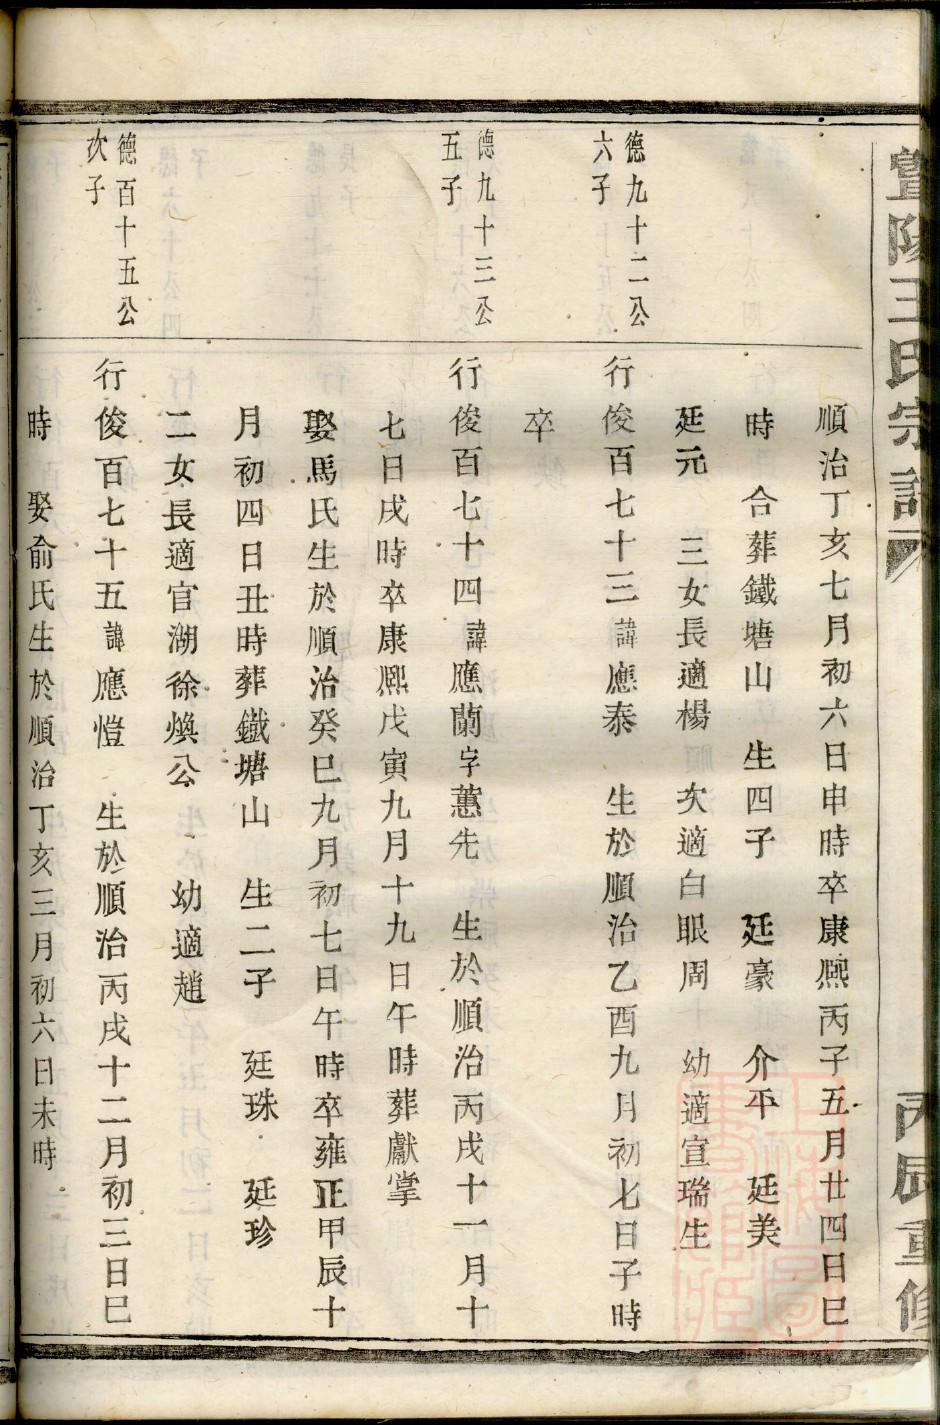 暨陽王氏宗譜
丙辰重修
順治丁亥七月初六日申時卒康熙丙子五月廿四日巳
時 合葬鐵塘山 生四子 廷豪 介平 廷美
廷元 三女長適楊 次適白眼周 幼適宣瑞生
德九十二公
六子
行俊百七十三諱應泰 生於順治乙酉九月初七日子時
卒
德九十三公
五子
行俊百七十四諱應蘭字蕙先 生於順治丙戌十一月十
七日戌時卒康熙戊寅九月十九日午時葬獻掌
娶馬氏生於順治癸巳九月初七日午時卒雍正甲辰十
月初四日丑時葬鐵塘山 生二子 廷珠 廷珍
二女長適官湖徐煥公 幼適趙
德百十五公
次子
行俊百七十五諱應愷 生於順治丙戌十二月初三日巳
時 娶俞氏生於順治丁亥三月初六日未時